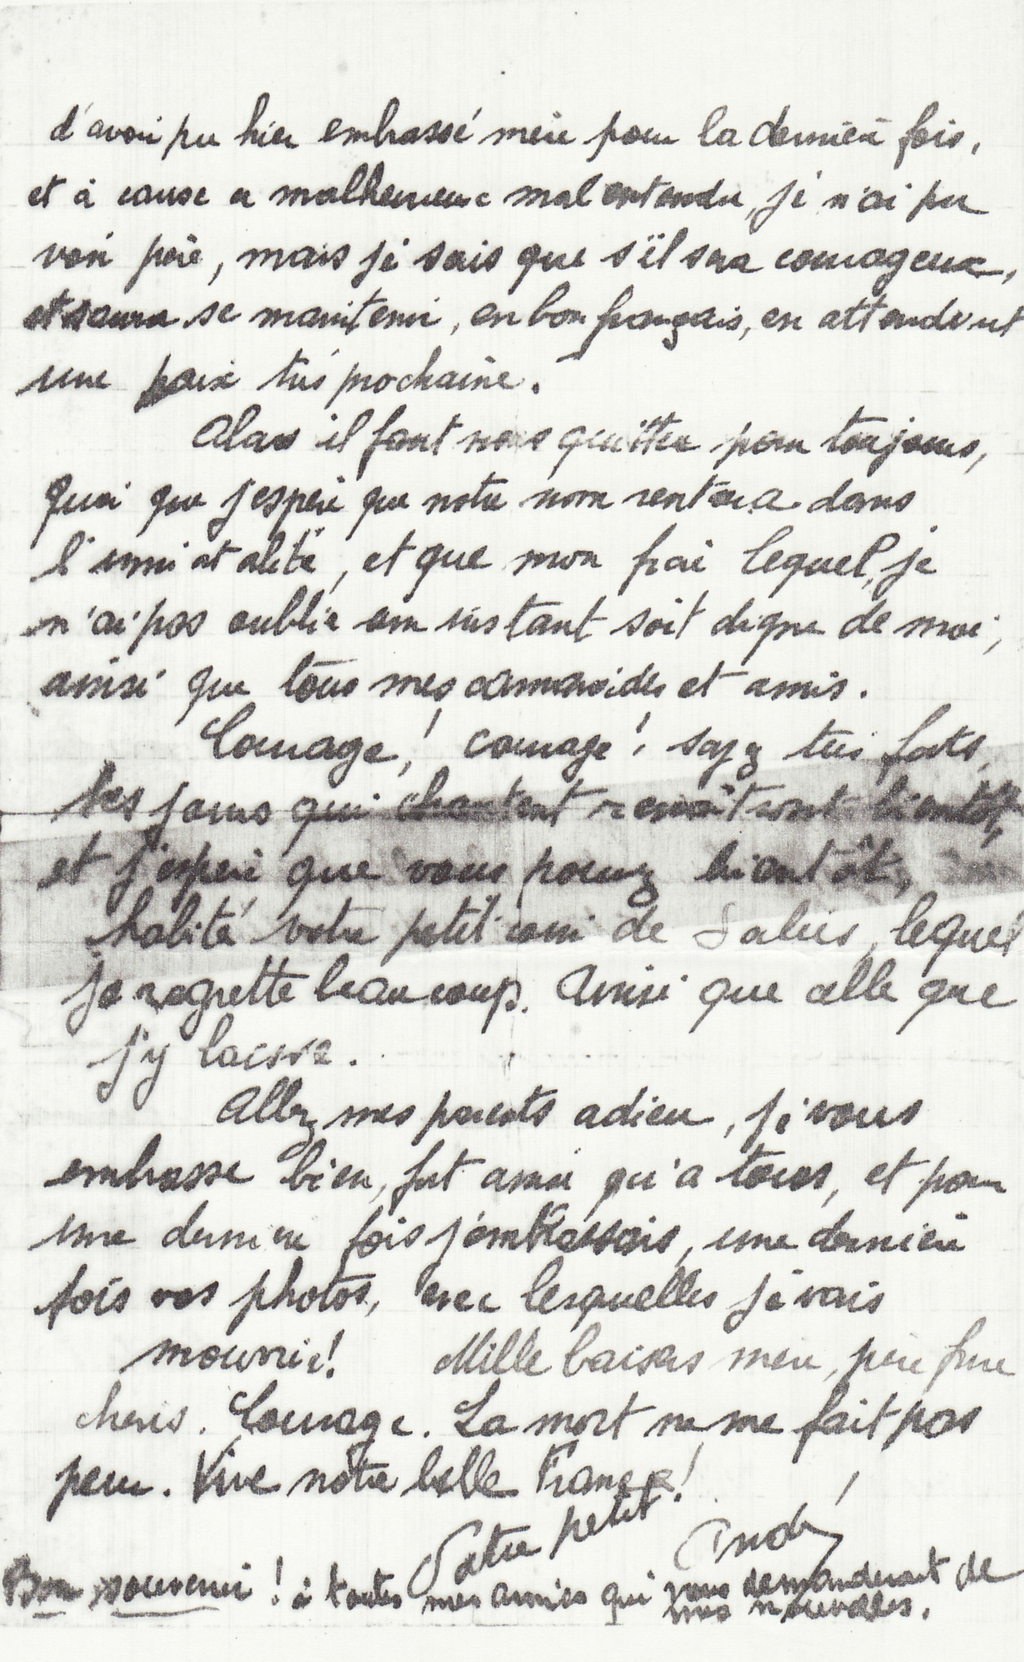 d'avoir pu hier embrassé mère pour la dernière fois,
et à cause a malheureux mal entendu, je n'ai pu
voir père, mais je sais que s'il sera courageux,
et saura se maintenir, en bon français, en attendant
une paix très prochaine.
Alas il faut nous quitter pour toujours,
quoi que j'espère que notre nom rentrera dans
l'immortalité, et que mon frère lequel, je
n'ai pas oublié un instant soit digne de moi,
ainsi que tous mes camarades et amis.
Courage! courage! soyez très forts,
les jours qui chantent renaîtront bientôt,
et j'espère que vous pourrez bientôt,
habité votre petit coin de Salies, lequel
je regrette beaucoup. Ainsi que celle que
j'y laisse.
Allez mes parents adieu, je vous
embrasse bien, fort ainsi qu'a tous, et pour
une dernière fois j'embrassais, une dernière
fois vos photos, avec lesquelles je vais
mourrir! Mille baisers mère, père frère
chéris. Courage. La mort ne me fait pas
peur. Vive notre belle France!
Votre petit André
Bon souvenir! à toutes mes amies qui vous demanderont de
mes nouvelles.